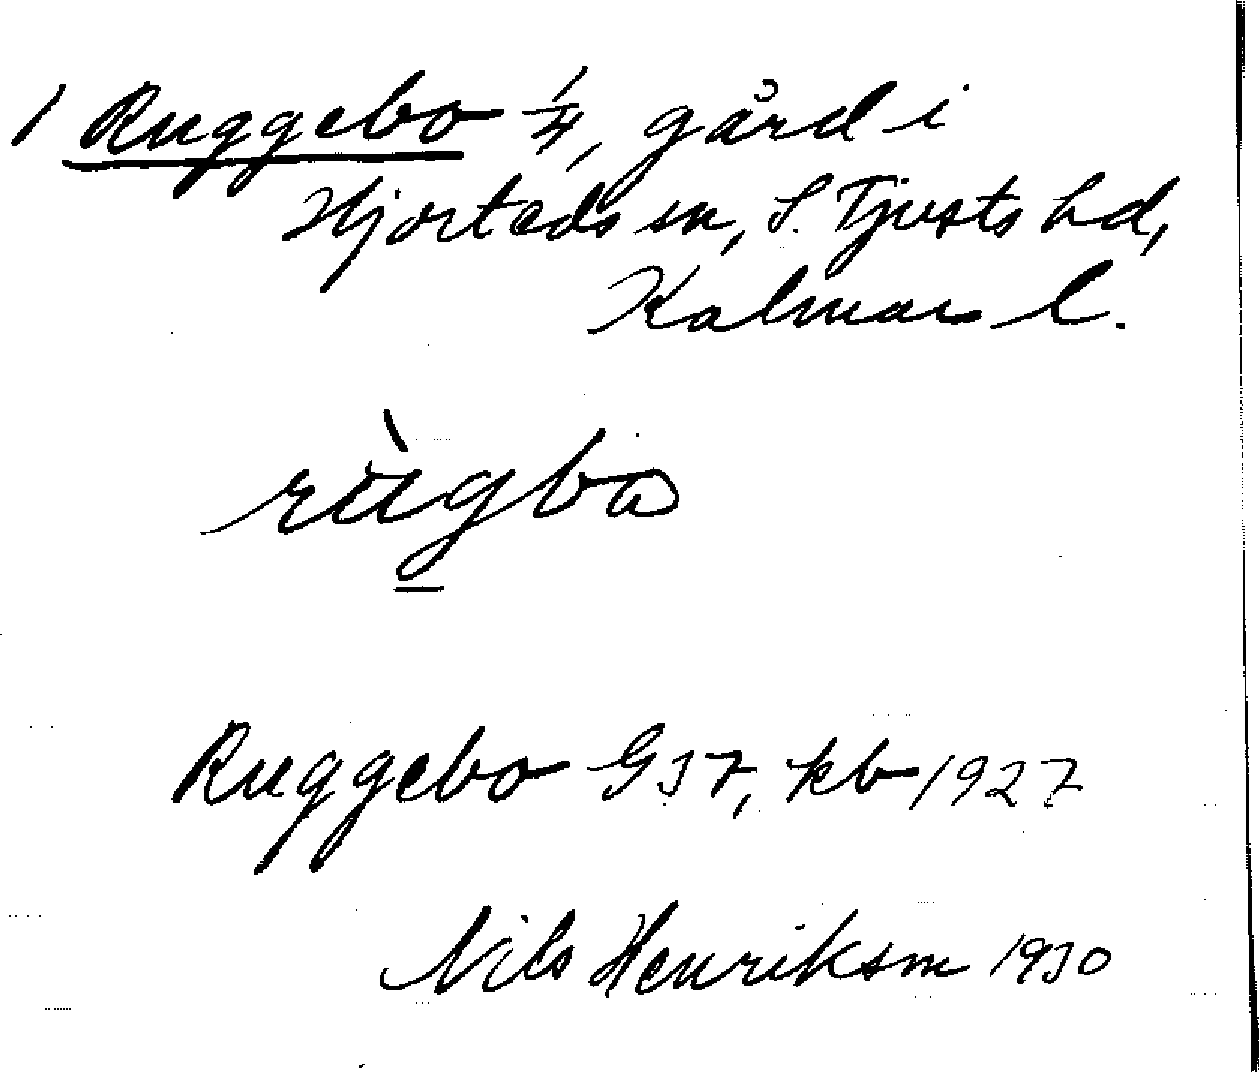 1 Ruggebo 1/4, gård i
Hjorteds sn, S. Tjusts hd,
Kalmar l.
rùgbo
Ruggebo GJ7, kb 1927
Nils Henriksm 1930